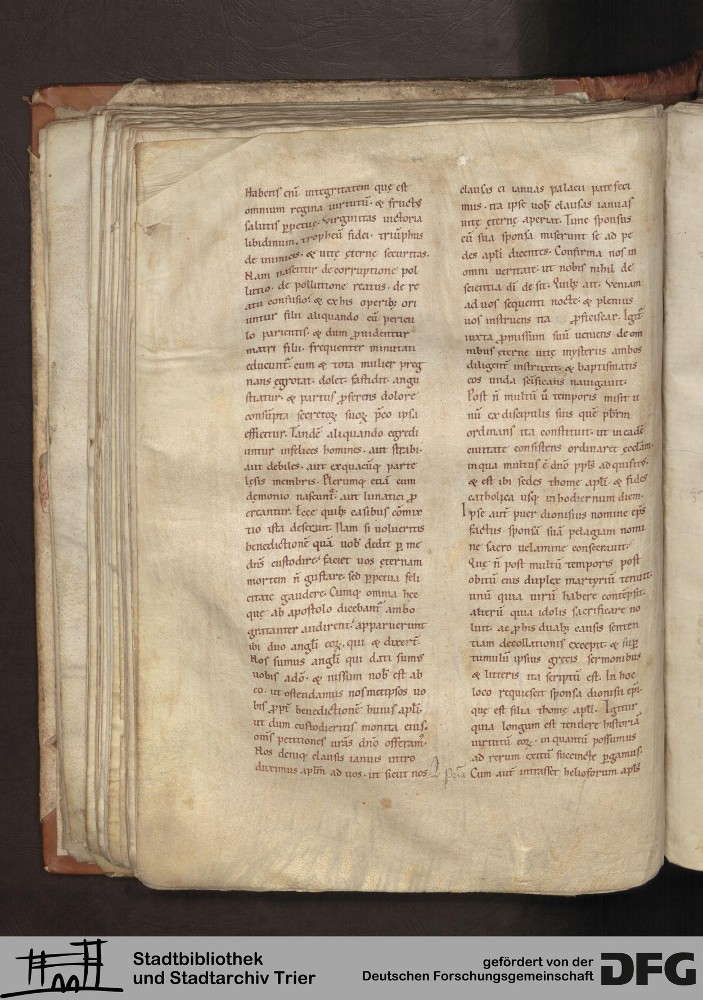 Habetis enī integritatem que est
omnium regina uirtutū · & fructꝰ
salutis ꝑpetuę · Virginitas uictoria
libidinum · tropheū fidei · triūphus
de inimicis · & uitę ęternę securitas ·
Nam nascitur de corruptione pol
lutio · de pollutione reatus · de re
atu confusio · & ex his operibꝫ ori
untur filii aliquando cū pericu
lo parientis · & dum ꝓuidentur
matri filii · frequenter
cum & tota mulier preg
nans egrotat · dolet · fastidit · angu
statur · & partus ꝓferens dolore
secretoꝝ suoꝝ p̄co ipsa
efficitur · Tandē aliquando egredi
untur infelices homines · aut strabi ·
aut debiles · aut exquacūq parte
lesis membris · Plerumq etiā cum
demonio nascunt᷒ · aut lunatici ꝓ
creantur · Ecce quibꝫ casibus cōmix
tio ista deseruit · Nam si uolueritis
benedictionē quā uob dedit ꝑ me
dn̄s custodire · faciet uos ęternam
mortem n̄ gustare · sed ꝑpetua feli
citate gaudere · Cumq omnia hęc
que ab apostolo dicebant᷒ ambo
gratanter audirent · apparuerunt
ibi duo angli eoꝝ · qui & dixert̄ ·
Nos sumus angli qui dati sumꝰ
uobis adō · & nissum nob est ab
eo · ut ostendamus nosmetipsos uo
bis ꝓpt̄ benedictionē huius apli ·
ut dum custodieritis monita eius ·
om̄s petitiones ur̄as dn̄o offeram᷒ ·
Nos deniq clausis ianuis intro
duximus aplm̄ ad uos · ut sicut nos
clausis ei ianuas palacii patefeci
mus · ita ipse uob clausas ianuas
uitę ęternę aperiat · Tunc sponsus
cū sua sponsa miserunt se ad pe
des apli dicentes · Confirma nos in
omni ueritate · ut nobis nihil de
scientia dī de sit · Quibꝫ ait · Veniam
ad uos sequenti nocte · & plenius
uos instruens ita ꝓficiscar · Igit᷒
iuxta ꝓmissum suū ueniens de om
nibus ęternę uitę mysteriis ambos
diligent̄ instruxit · & baptismatis
eos unda scīficans nauigauit ·
Post n̄ multū ū temporis misit u
nū ex discipulis suis quē p̄bm
ordinans ita constituit · ut in eadē
ciuitate consistens ordinaret eccl̄am ·
inqua multus ē dn̄o ppls adquisitꝰ ·
& est ibi sedes thome apli · & fides
catholica usq in hodiernum diem ·
Ipse aut̄ puer dionisius nomine ep̄s
factus sponsā suā pelagiam nomi
ne sacro uelamine consecrauit ·
Quę n̄ post multū temporis post
obitū eius duplex martyriū tenuit ·
unū quia uirū habere contēpsit ·
alterū quia idolis sacrificare no
luit · ac ꝓ his duabꝫ causis senten
tiam decollationis excepit · & sup̄
tumulū ipsius grecis sermonibus
& litteris ita scriptū est · In hoc
loco requiescit sponsa dionisii ep̄i ·
que est filia thome apli · Igitur
quia longum est tendere historiā
uirtutū eoꝝ · in quantū possumus
ad rerum exitū succincte ꝑgamus ·
Cum aut̄ intrasset helioforum apls
Stadtbibliothek
und Stadtarchiv Trier
gefördert von der
Deutschen Forschungsgemeinschaft
DFG